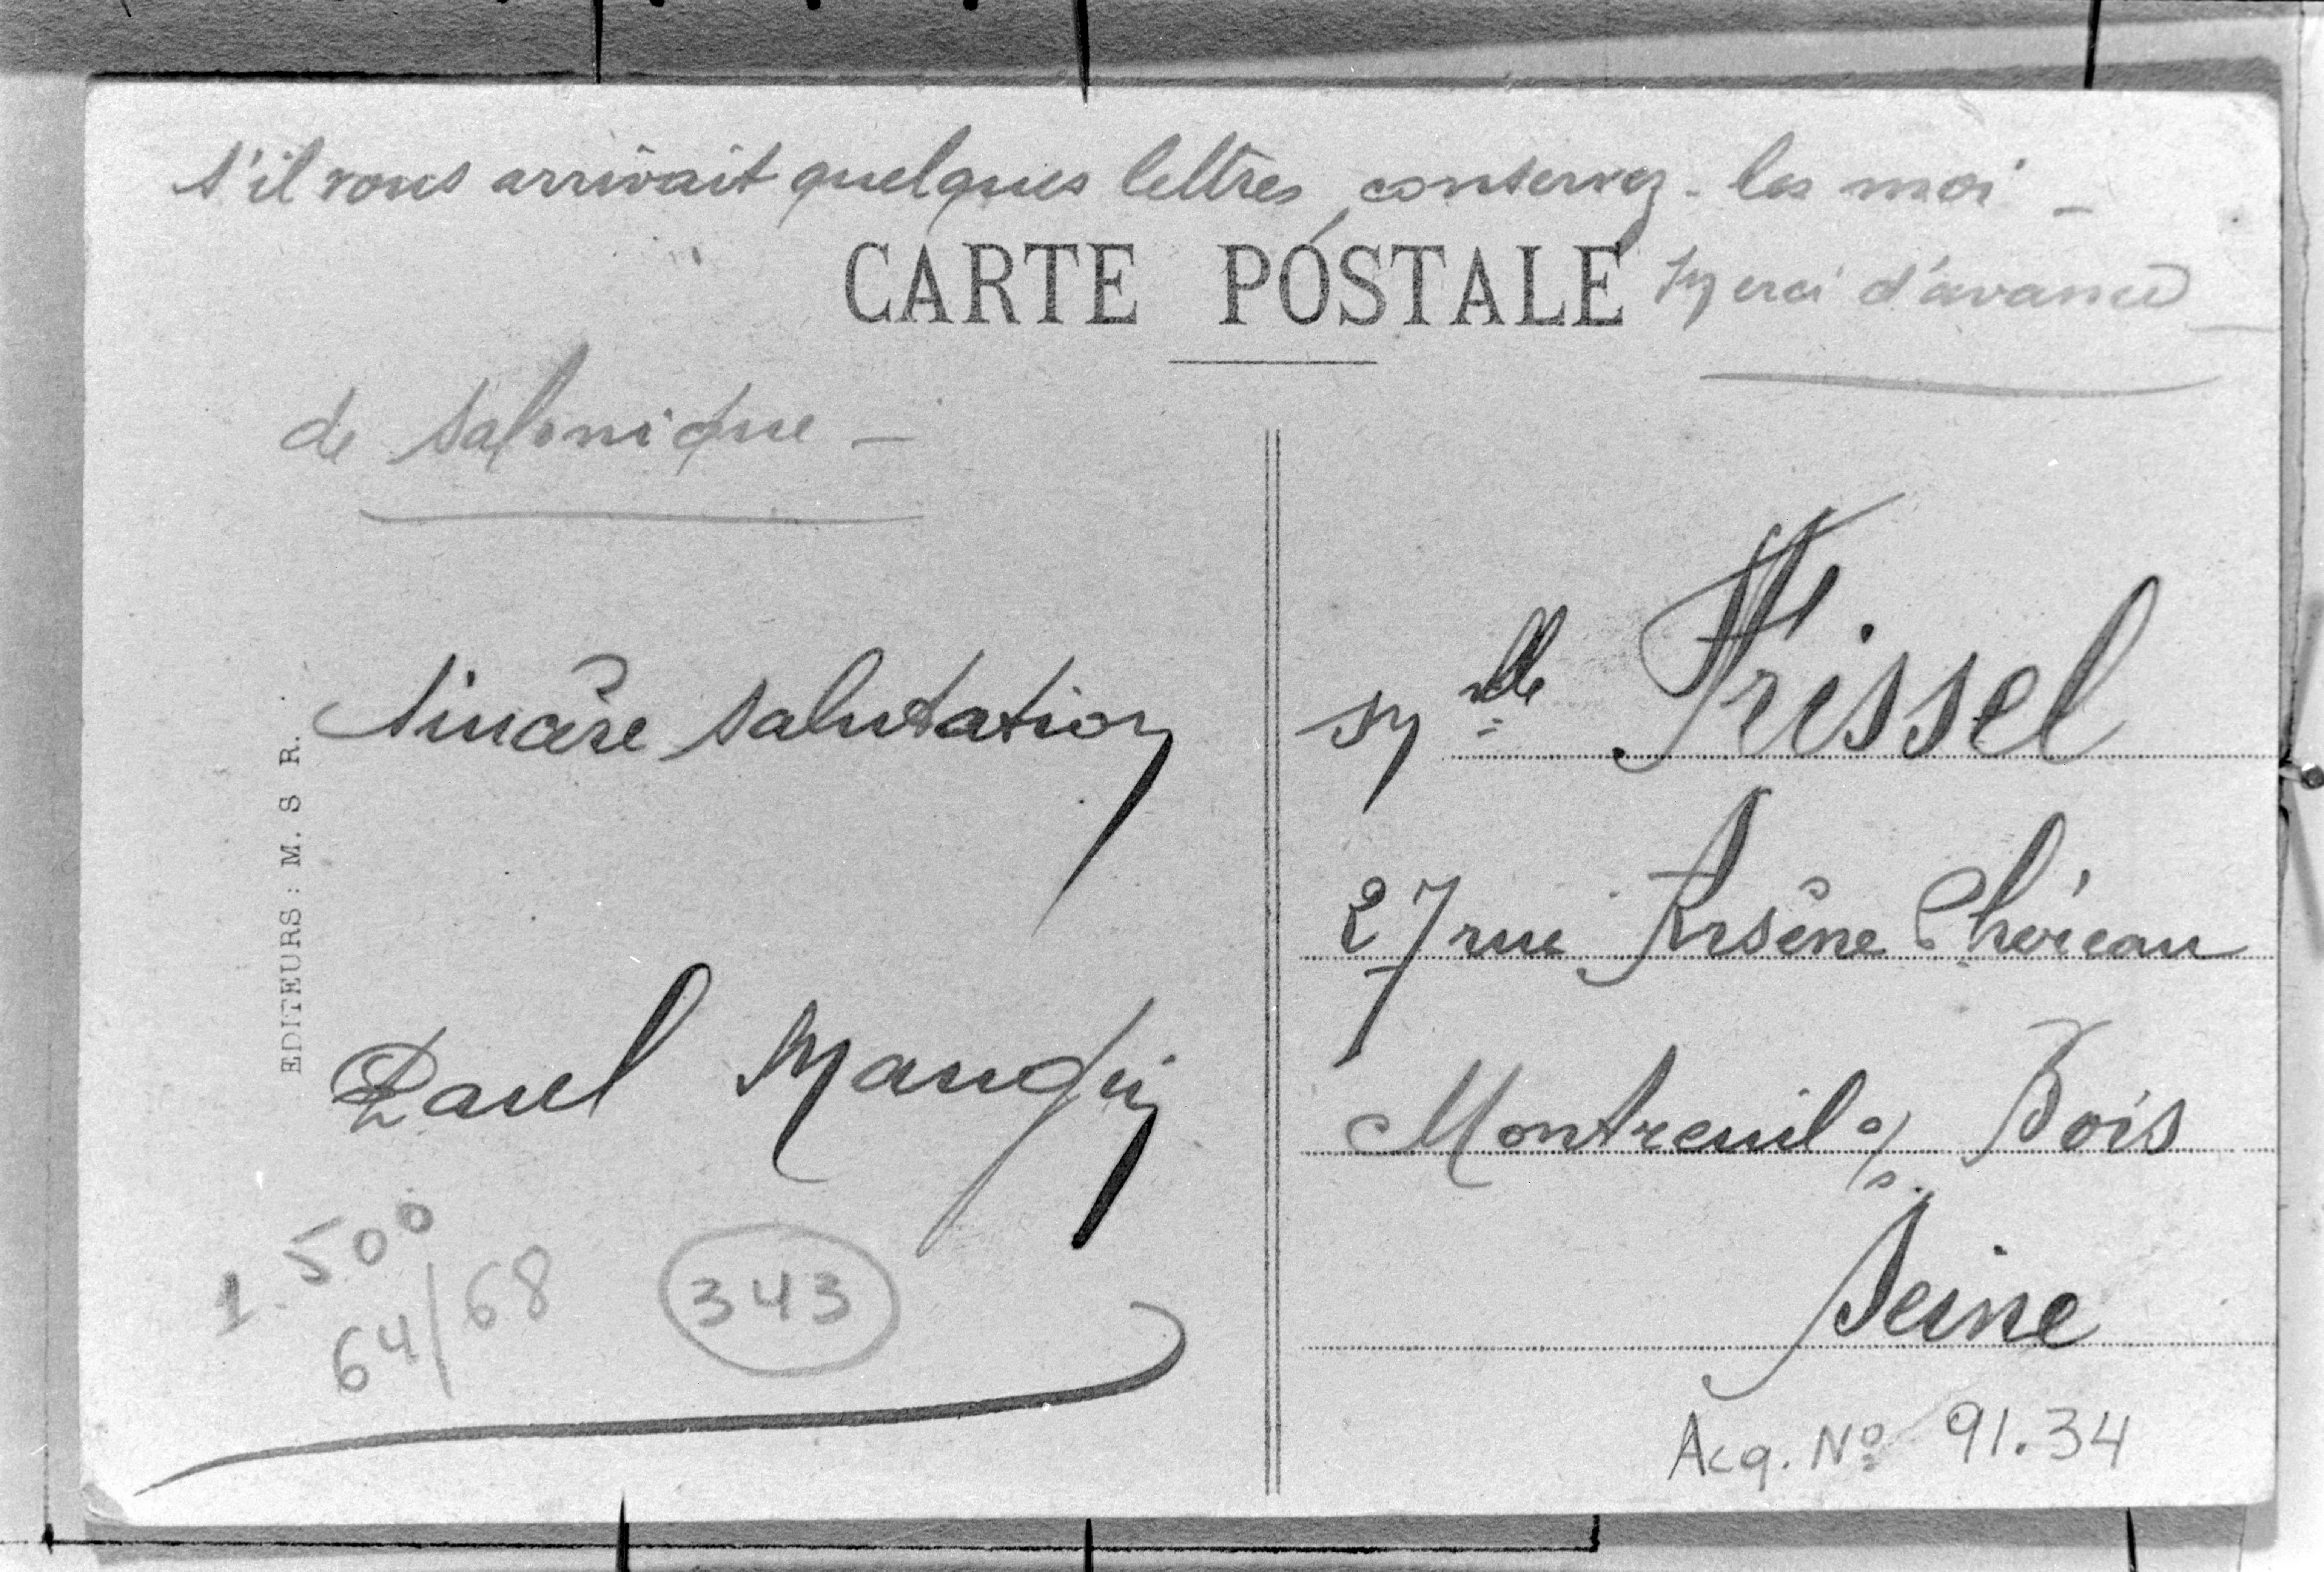 s'il vous arrivait quelques lettres, conservez-les moi –
CARTE POSTALE
Merci d'avance –
de Salonique –
Sincère Salutation
Paul Maugin
EDITEURS : M. S R.
1.500
64/68
343
Mlle Frissel
27 rue Arsène Chéreau
Montreuil s/s Bois
Seine
Acq. Nº 91.34